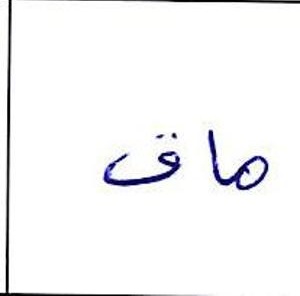 ماق